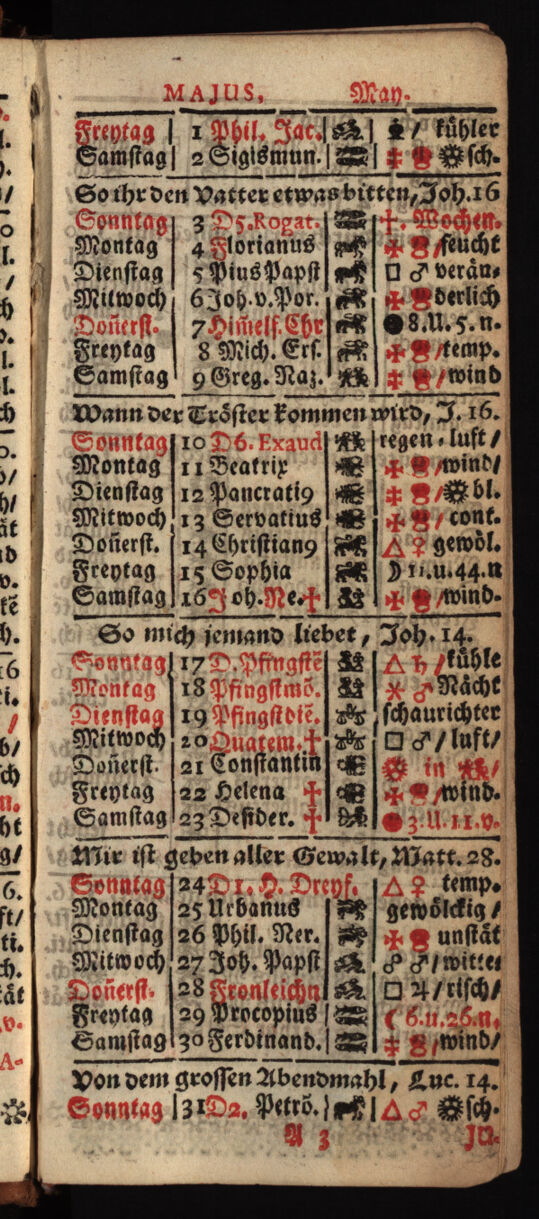 MAJUS, May.
Freytag 1 Phil. Jac. / kühler
Samstag 2 Sigismun. sch.
So ihr den Vatter etwas bitten, Joh. 16
Sonntag 3 D5. Rogat. ☩. Wochen.
Montag 4 Florianus /feucht
Dienstag 5 Pius Papst □ ♂ verän⸗
Mitwoch 6 Joh. v. Por. derlich
Doñerst. 7 Him̃elf. Chr ● 8. U. 5. n.
Freytag 8 Mich. Ers. /temp.
Samstag 9 Greg. Naz. /wind
Wann der Tröster kommen wird, J. 16.
Sonntag 10 D6. Exaud regen⸗luft/
Montag 11 Beatrix /wind/
Dienstag 12 Pancrati9 / bl.
Mitwoch 13 Servatius / cont.
Doñerst. 14 Christian9 △ ♀ gewöl.
Freytag 15 Sophia ☽ 11. u. 44. n
Samstag 16 Joh. Ne. ☩ /wind.
So mich jemand liebet, Joh. 14.
Sonntag 17 D. Pfingstẽ △ ♄ /kühle
Montag 18 Pfingstmõ. ⚹ ♂ Nächt
Dienstag 19 Pfingstdiẽ. schaurichter
Mitwoch 20 Quatem. ☩ □ ♂ /luft/
Doñerst. 21 Constantin in ♊/
Freytag 22 Helena ☩ /wind.
Samstag 23 Desider. ☩ ● 3. U. 11. v.
Mir ist geben aller Gewalt, Matt. 28.
Sonntag 24 D1. H. Dreyf. △ ♀ temp.
Montag 25 Urbanus gewölckig /
Dienstag 26 Phil. Ner. unstät
Mitwoch 27 Joh. Papst ☍ ♂ /witte⸗
Doñerst. 28 Fronleichn □ ♃ /risch/
Freytag 29 Procopius ☾ 6. u. 26. n.
Samstag 30 Ferdinand. /wind/
Von dem grossen Abendmahl, Luc. 14.
Sonntag 31 D2. Petrõ. △ ♂ sch.
A 3 Ju.